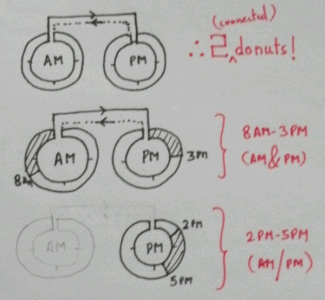 AM PM
∴ 2 (connected) donuts!
AM PM
8AM 3PM
8AM-3PM
(AM & PM)
AM PM
2PM
5PM
2PM-5PM
(AM/PM)